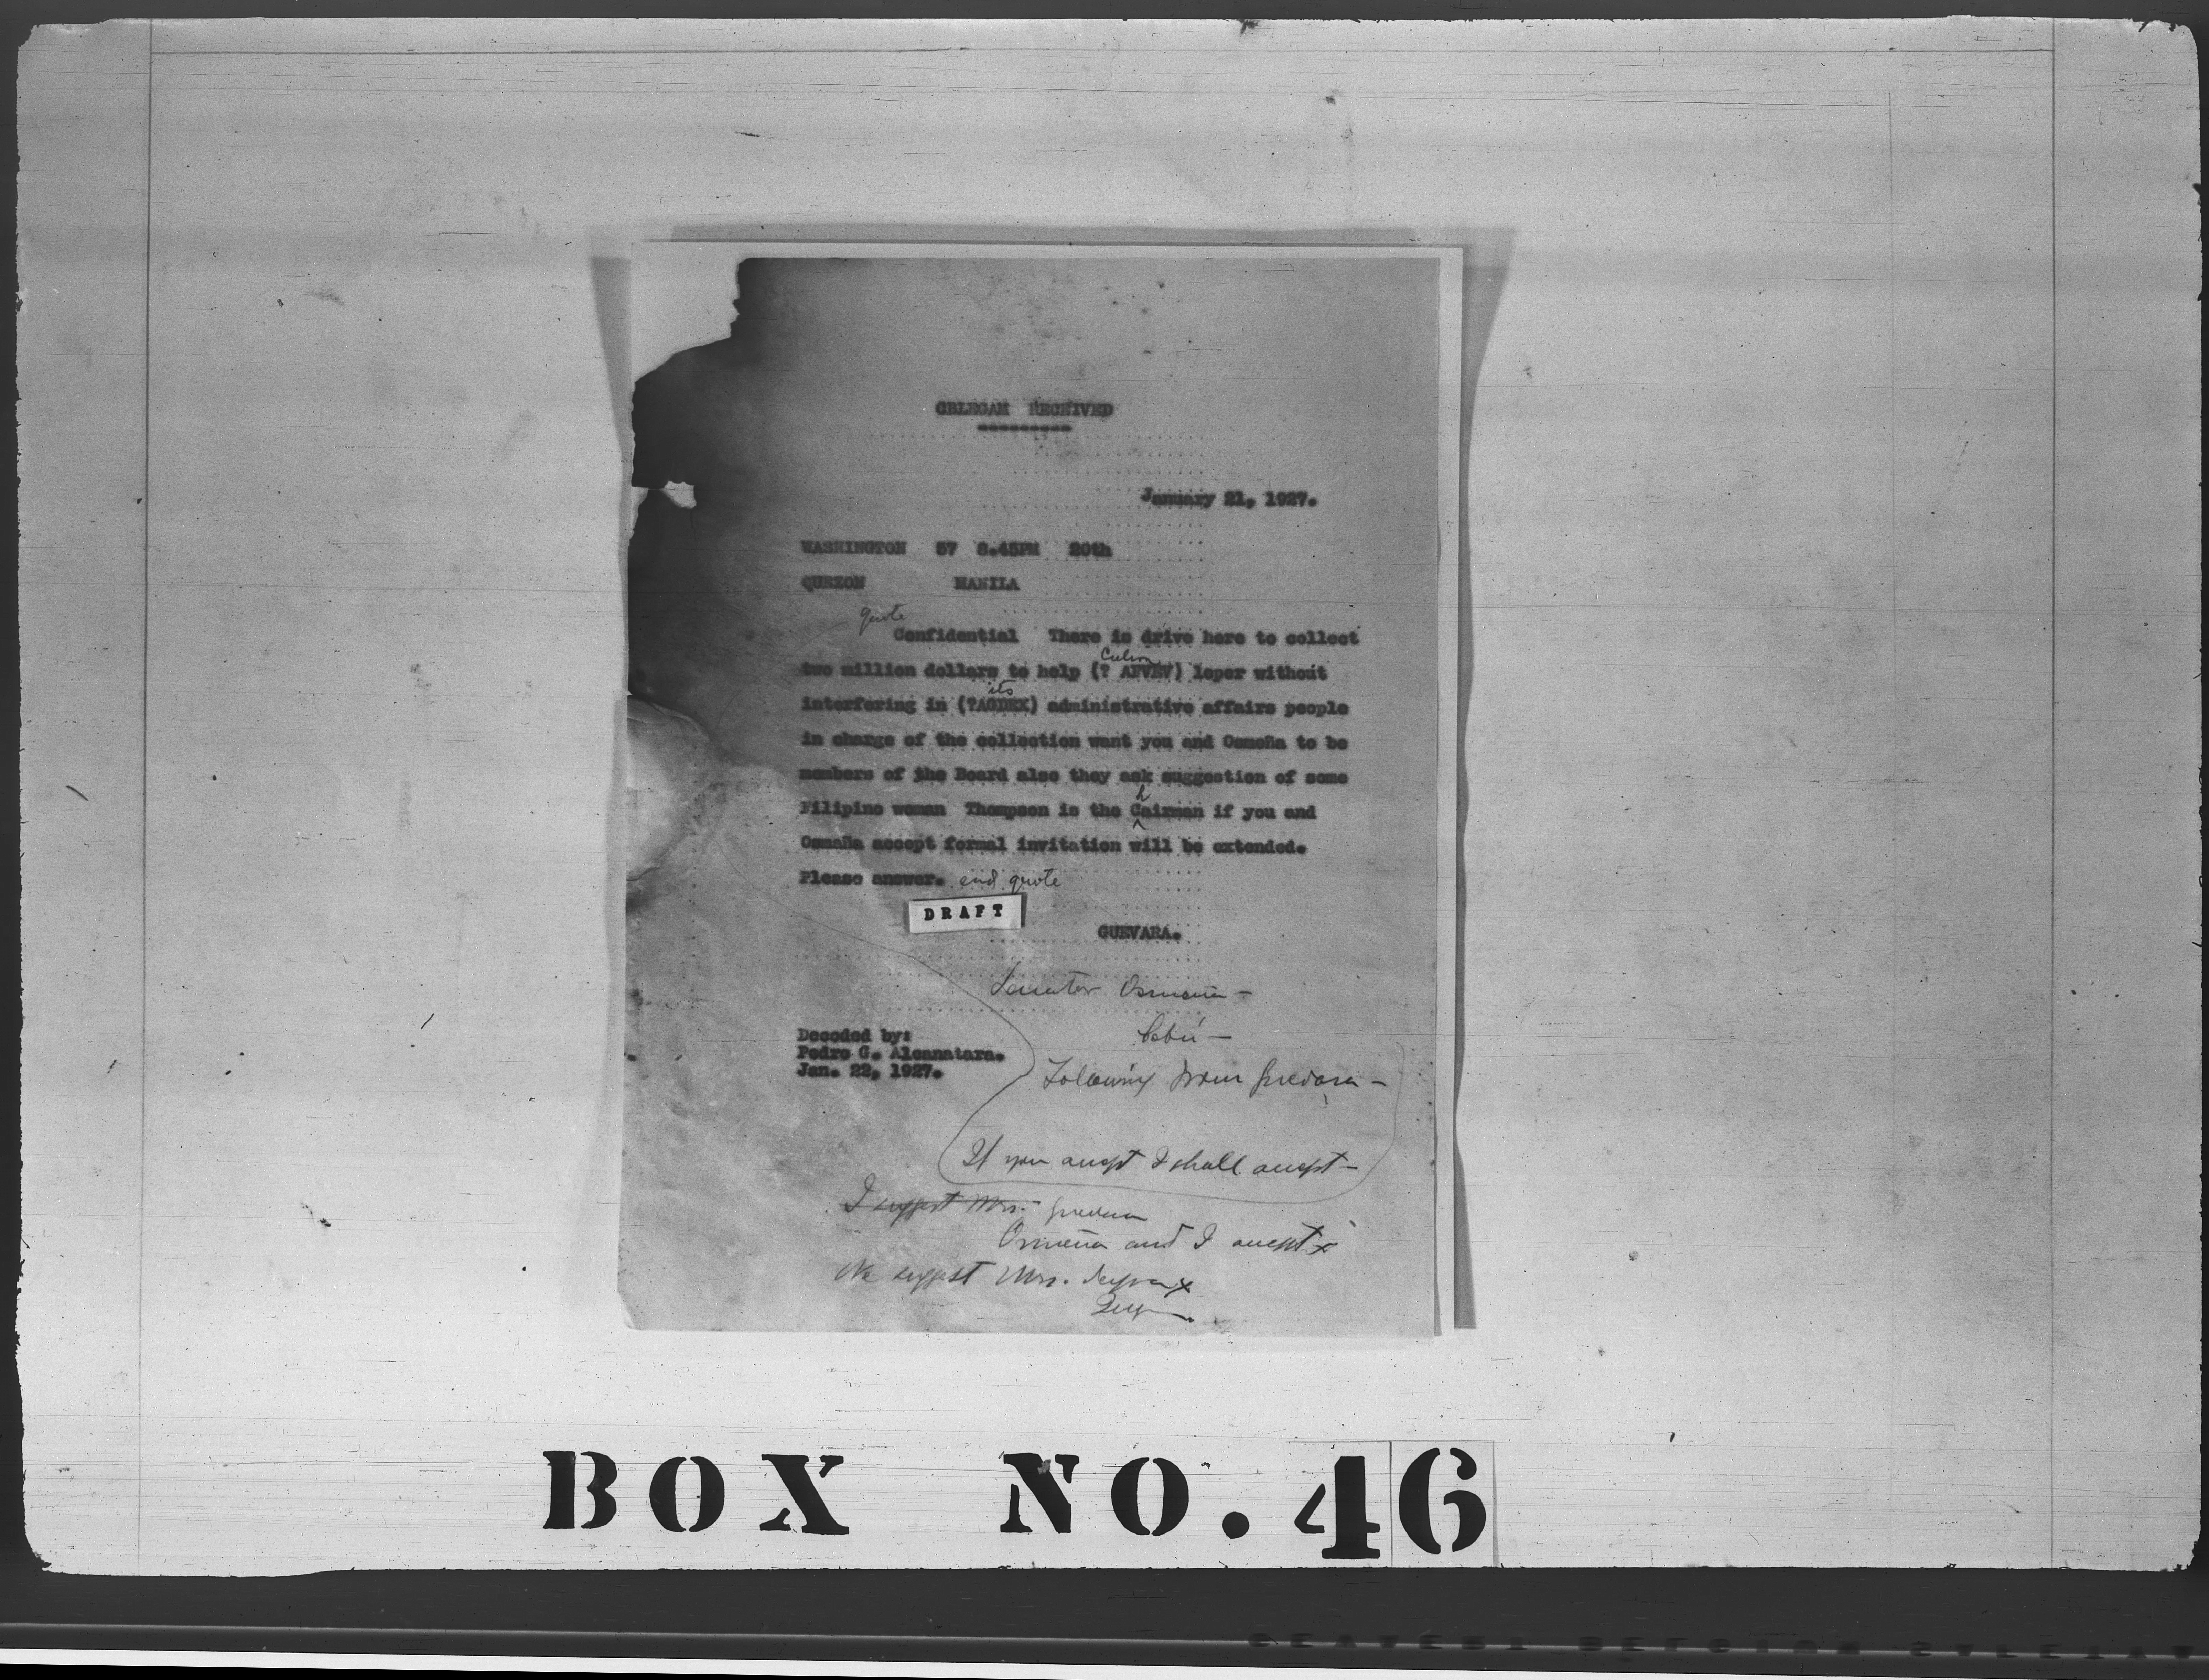 CBLEGAM RECEIVED
January 21, 1927.
WASHINGTON 57 8.45PM 20th
QUEZON MANILA
quote
Confidential There is drive here to collect
Culion
two million dollars to help (? AFVEV) leper without
its
interfering in (?AGDEX) administrative affairs people
in charge of the collection want you and Osmeña to be
members of the Board also they ask suggestion of some
h
Filipino woman Thompson is the Cairman if you and
Osmeña accept formal invitation will be extended.
Please answer. end quote
DRAFT
GUEVARA.
Senator Osmeña -
Cebú -
Decoded by:
Pedro G. Alcanatara.
Jan. 22, 1927.
Following from Guevara -
If you accept I shall accept -
I suggest Mrs. Guevara
Osmeña and I accept x
We suggest Mrs. x
BOX NO. 46